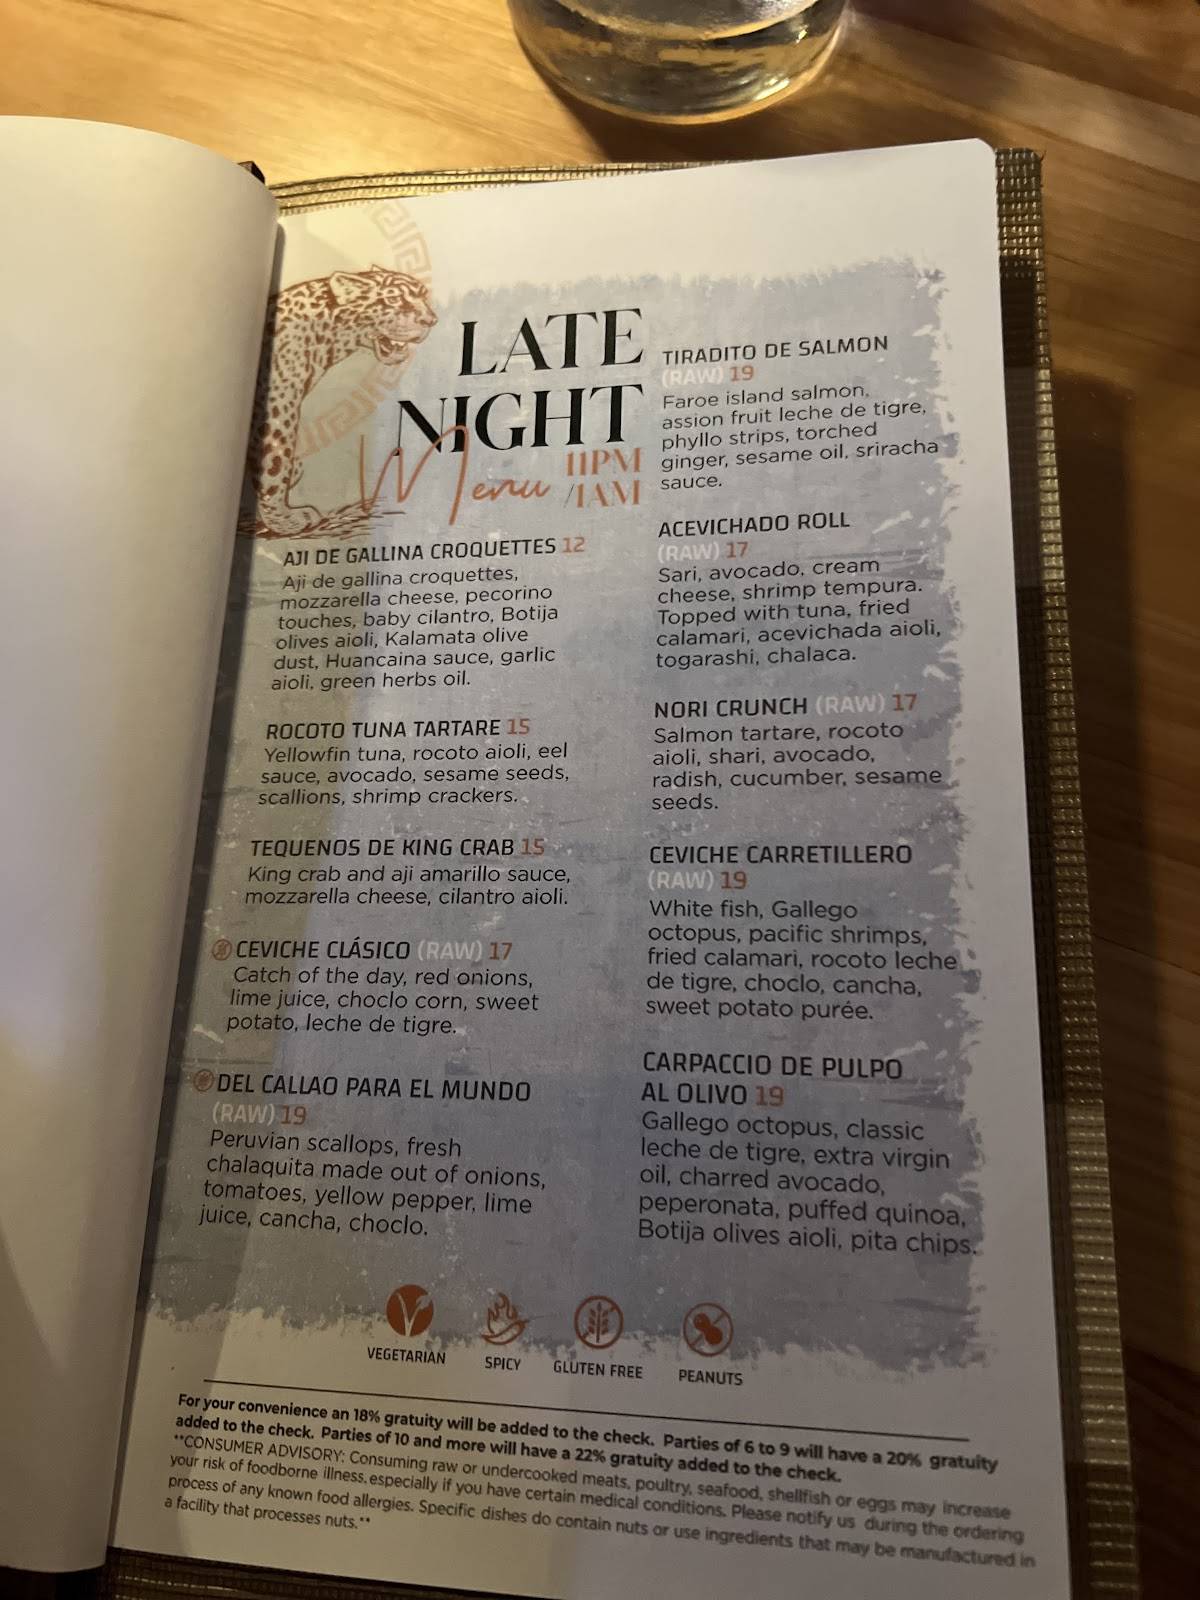 LATE
NIGHT
Menu 11PM
/1AM
AJI DE GALLINA CROQUETTES 12
Aji de gallina croquettes,
mozzarella cheese, pecorino
touches, baby cilantro, Botija
olives aioli, Kalamata olive
dust, Huancaina sauce, garlic
aioli, green herbs oil.
ROCOTO TUNA TARTARE 15
Yellowfin tuna, rocoto aioli, eel
sauce, avocado, sesame seeds,
scallions, shrimp crackers.
TEQUENOS DE KING CRAB 15
King crab and aji amarillo sauce,
mozzarella cheese, cilantro aioli.
CEVICHE CLÁSICO (RAW) 17
Catch of the day, red onions,
lime juice, choclo corn, sweet
potato, leche de tigre.
DEL CALLAO PARA EL MUNDO
(RAW) 19
Peruvian scallops, fresh
chalaquita made out of onions,
tomatoes, yellow pepper, lime
juice, cancha, choclo.
TIRADITO DE SALMON
(RAW) 19
Faroe island salmon,
assion fruit leche de tigre,
phyllo strips, torched
ginger, sesame oil, sriracha
sauce.
ACEVICHADO ROLL
(RAW) 17
Sari, avocado, cream
cheese, shrimp tempura.
Topped with tuna, fried
calamari, acevichada aioli,
togarashi, chalaca.
NORI CRUNCH (RAW) 17
Salmon tartare, rocoto
aioli, shari, avocado,
radish, cucumber, sesame
seeds.
CEVICHE CARRETILLERO
(RAW) 19
White fish, Gallego
octopus, pacific shrimps,
fried calamari, rocoto leche
de tigre, choclo, cancha,
sweet potato purée.
CARPACCIO DE PULPO
AL OLIVO 19
Gallego octopus, classic
leche de tigre, extra virgin
oil, charred avocado,
peperonata, puffed quinoa,
Botija olives aioli, pita chips.
VEGETARIAN SPICY GLUTEN FREE PEANUTS
For your convenience an 18% gratuity will be added to the check. Parties of 6 to 9 will have a 20% gratuity
added to the check. Parties of 10 and more will have a 22% gratuity added to the check.
**CONSUMER ADVISORY: Consuming raw or undercooked meats, poultry, seafood, shellfish or eggs may increase
your risk of foodborne illness, especially if you have certain medical conditions. Please notify us during the ordering
process of any known food allergies. Specific dishes do contain nuts or use ingredients that may be manufactured in
a facility that processes nuts.**